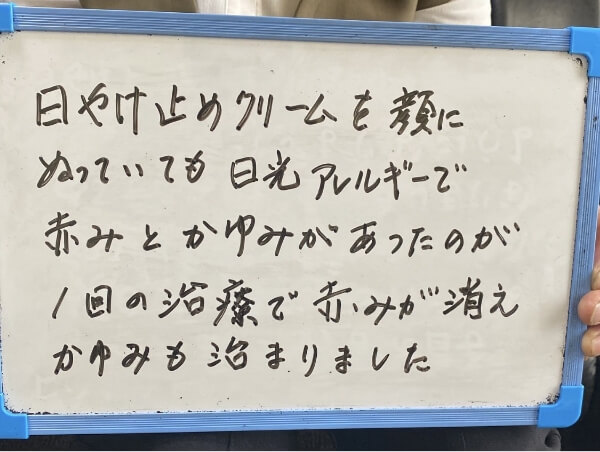 日やけ止めクリームを顔に
ぬっていても日光アレルギーで
赤みとかゆみがあったのが
1回の治療で赤みが消え
かゆみも治まりました